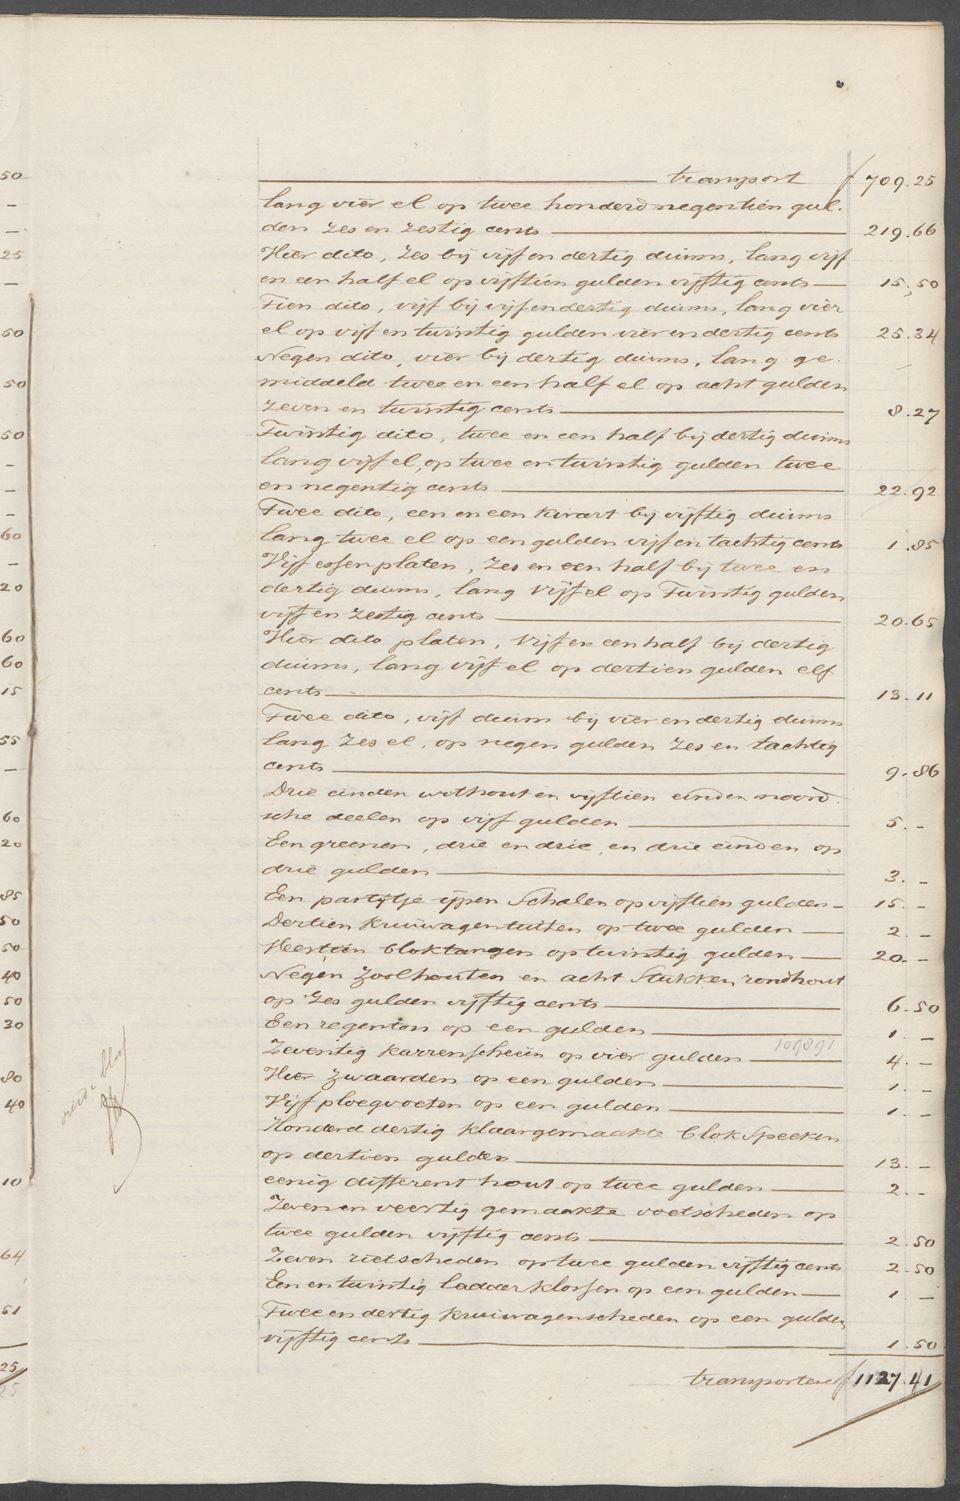 transport f 709.25
lang vier el op twee honderd negentien gul-
den zes en zestig cents 219.66
Vier dito, zes bij vijf en dertig duims, lang vijf
en een half el op vijftien gulden vijftig cents 15.50
Tien dito, vijf bij vijf en dertig duims, lang vier
el op vijf en twintig gulden vier en dertig cents 25.34
Negen dito, vier bij dertig duims, lang ge-
middeld twee en een half el op acht gulden
zeven en twintig cents 8.27
Twintig dito, twee en een half bij dertig duims
lang vijf el, op twee en twintig gulden twee
en negentig cents 22.92
Twee dito, een en een kwart bij vijftig duims
lang twee el op een gulden vijf en tachtig cents 1.85
Vijf essen platen, zes en een half bij twee en
dertig duims, lang vijf el op Twintig gulden
vijf en zestig cents 20.65
Vier dito platen, vijf en een half bij dertig
duims, lang vijf el op dertien gulden elf
cents 13.11
Twee dito, vijf duim bij vier en dertig duims
lang zes el, op negen gulden zes en tachtig
cents 9.86
Drie einden without en vijftien einden noord-
sche deelen op vijf gulden 5.-
Een greenen, drie en drie, en drie einden op
drie gulden 3.-
Een partijtje ijpen Schalen op vijftien gulden 15.-
Dertien kruiwagentuiten op twee gulden 2.-
Veertien bloktangen op twintig gulden 20.-
Negen zoolhouten en acht Stukken rondhout
op zes gulden vijftig cents 6.50
Een regenton op een gulden 1.-
Zeventig karrenscheien op vier gulden 4.-
Vier zwaarden op een gulden 1.-
Vijf ploegvoeten op een gulden 1.-
Honderd dertig klaargemaakte blokspeeken
op dertien gulden 13.-
eenig different hout op twee gulden 2.-
Zeven en veertig gemaakte voetscheden op
twee gulden vijftig cents 2.50
Zeven rietscheden op twee gulden vijftig cents 2.50
Een en twintig ladderklossen op een gulden 1.-
Twee en dertig kruiwagenscheden op een gulden
vijftig cents 1.50
transporteere f 1127.41